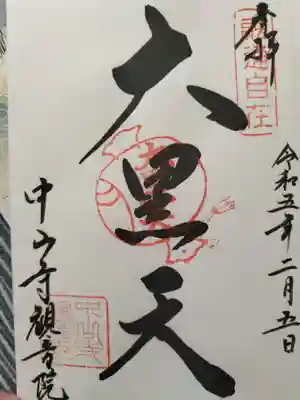 奉拝
福運自在
令和五年二月五日
大黒天
中山寺観音院